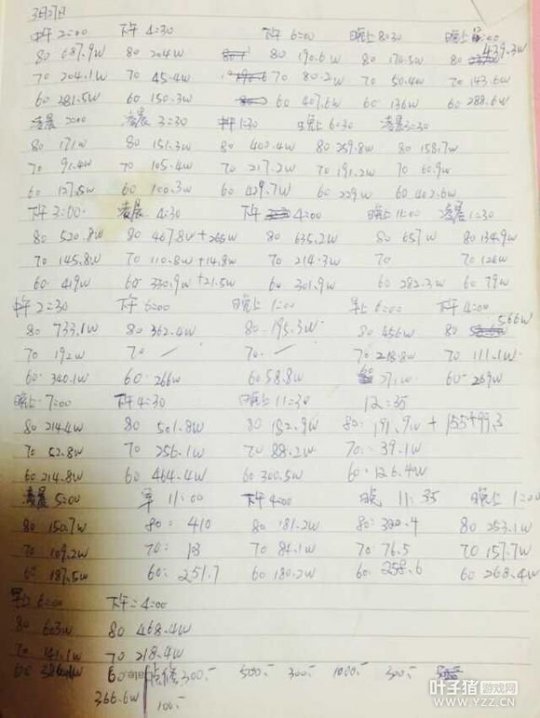 3月27日
中午 2:00 下午 4:30 下午 6:00 晚上 8:30 晚上
80 687.9w 80 204w 80 190.6w 80 170.5w 80 439.3w
70 204.1w 70 45.4w 70 80.2w 70 50.4w 70 143.6w
60 281.5w 60 150.3w 60 407.6w 60 136w 60 288.6w
凌晨 2:00 凌晨 3:30 中午 1:30 晚上 6:30 凌晨 3:30
80 171w 80 151.3w 80 400.4w 80 259.8w 80 158.7w
70 91.4w 70 105.4w 70 217.2w 70 191.2w 70 60.9w
60 127.5w 60 100.3w 60 429.7w 60 229w 60 402.6w
下午 3:00 凌晨 4:30 下午 4:00 晚上 11:00 凌晨 1:30
80 520.8w 80 467.8w+266w 80 635.2w 80 657w 80 134.9w
70 145.8w 70 110.8w+14.8w 70 214.3w 70 70 126w
60 419w 60 330.9w+21.5w 60 301.9w 60 282.3w 60 79w
中午 2:30 下午 6:00 晚上 1:00 早上 6:00 下午 4:00
80 733.1w 80 362.4w 80 195.3w 80 456w 80 566w
70 192w 70 / 70 / 70 218.8w 70 111.1w
60 340.1w 60 266w 60 58.8w 60 271w 60 269w
晚上 7:00 下午 4:30 晚上 11:30 12:35
80 214.4w 80 501.8w 80 152.9w 80: 191.9w+155+99.3
70 52.8w 70 256.1w 70 88.2w 70: 39.1w
60 214.8w 60 464.4w 60 300.5w 60: 126.4w
凌晨 5:00 早 11:00 下午 4:00 晚 11:35 晚上 1:00
80 150.7w 80: 410 80 181.2w 80: 300.4 80 253.1w
70 109.2w 70: 113 70 84.1w 70 76.5 70 157.7w
60 187.5w 60: 251.7 60 180.2w 60: 258.6 60 268.4w
早上 6:00 下午 4:00
80 603w 80 468.4w
70 141.1w 70 218.4w
60 60 点修 300.- 500.- 300.- 1000.- 300.-
366.6w 100.-
叶子猪 游戏网
WWW.YZZ.CN